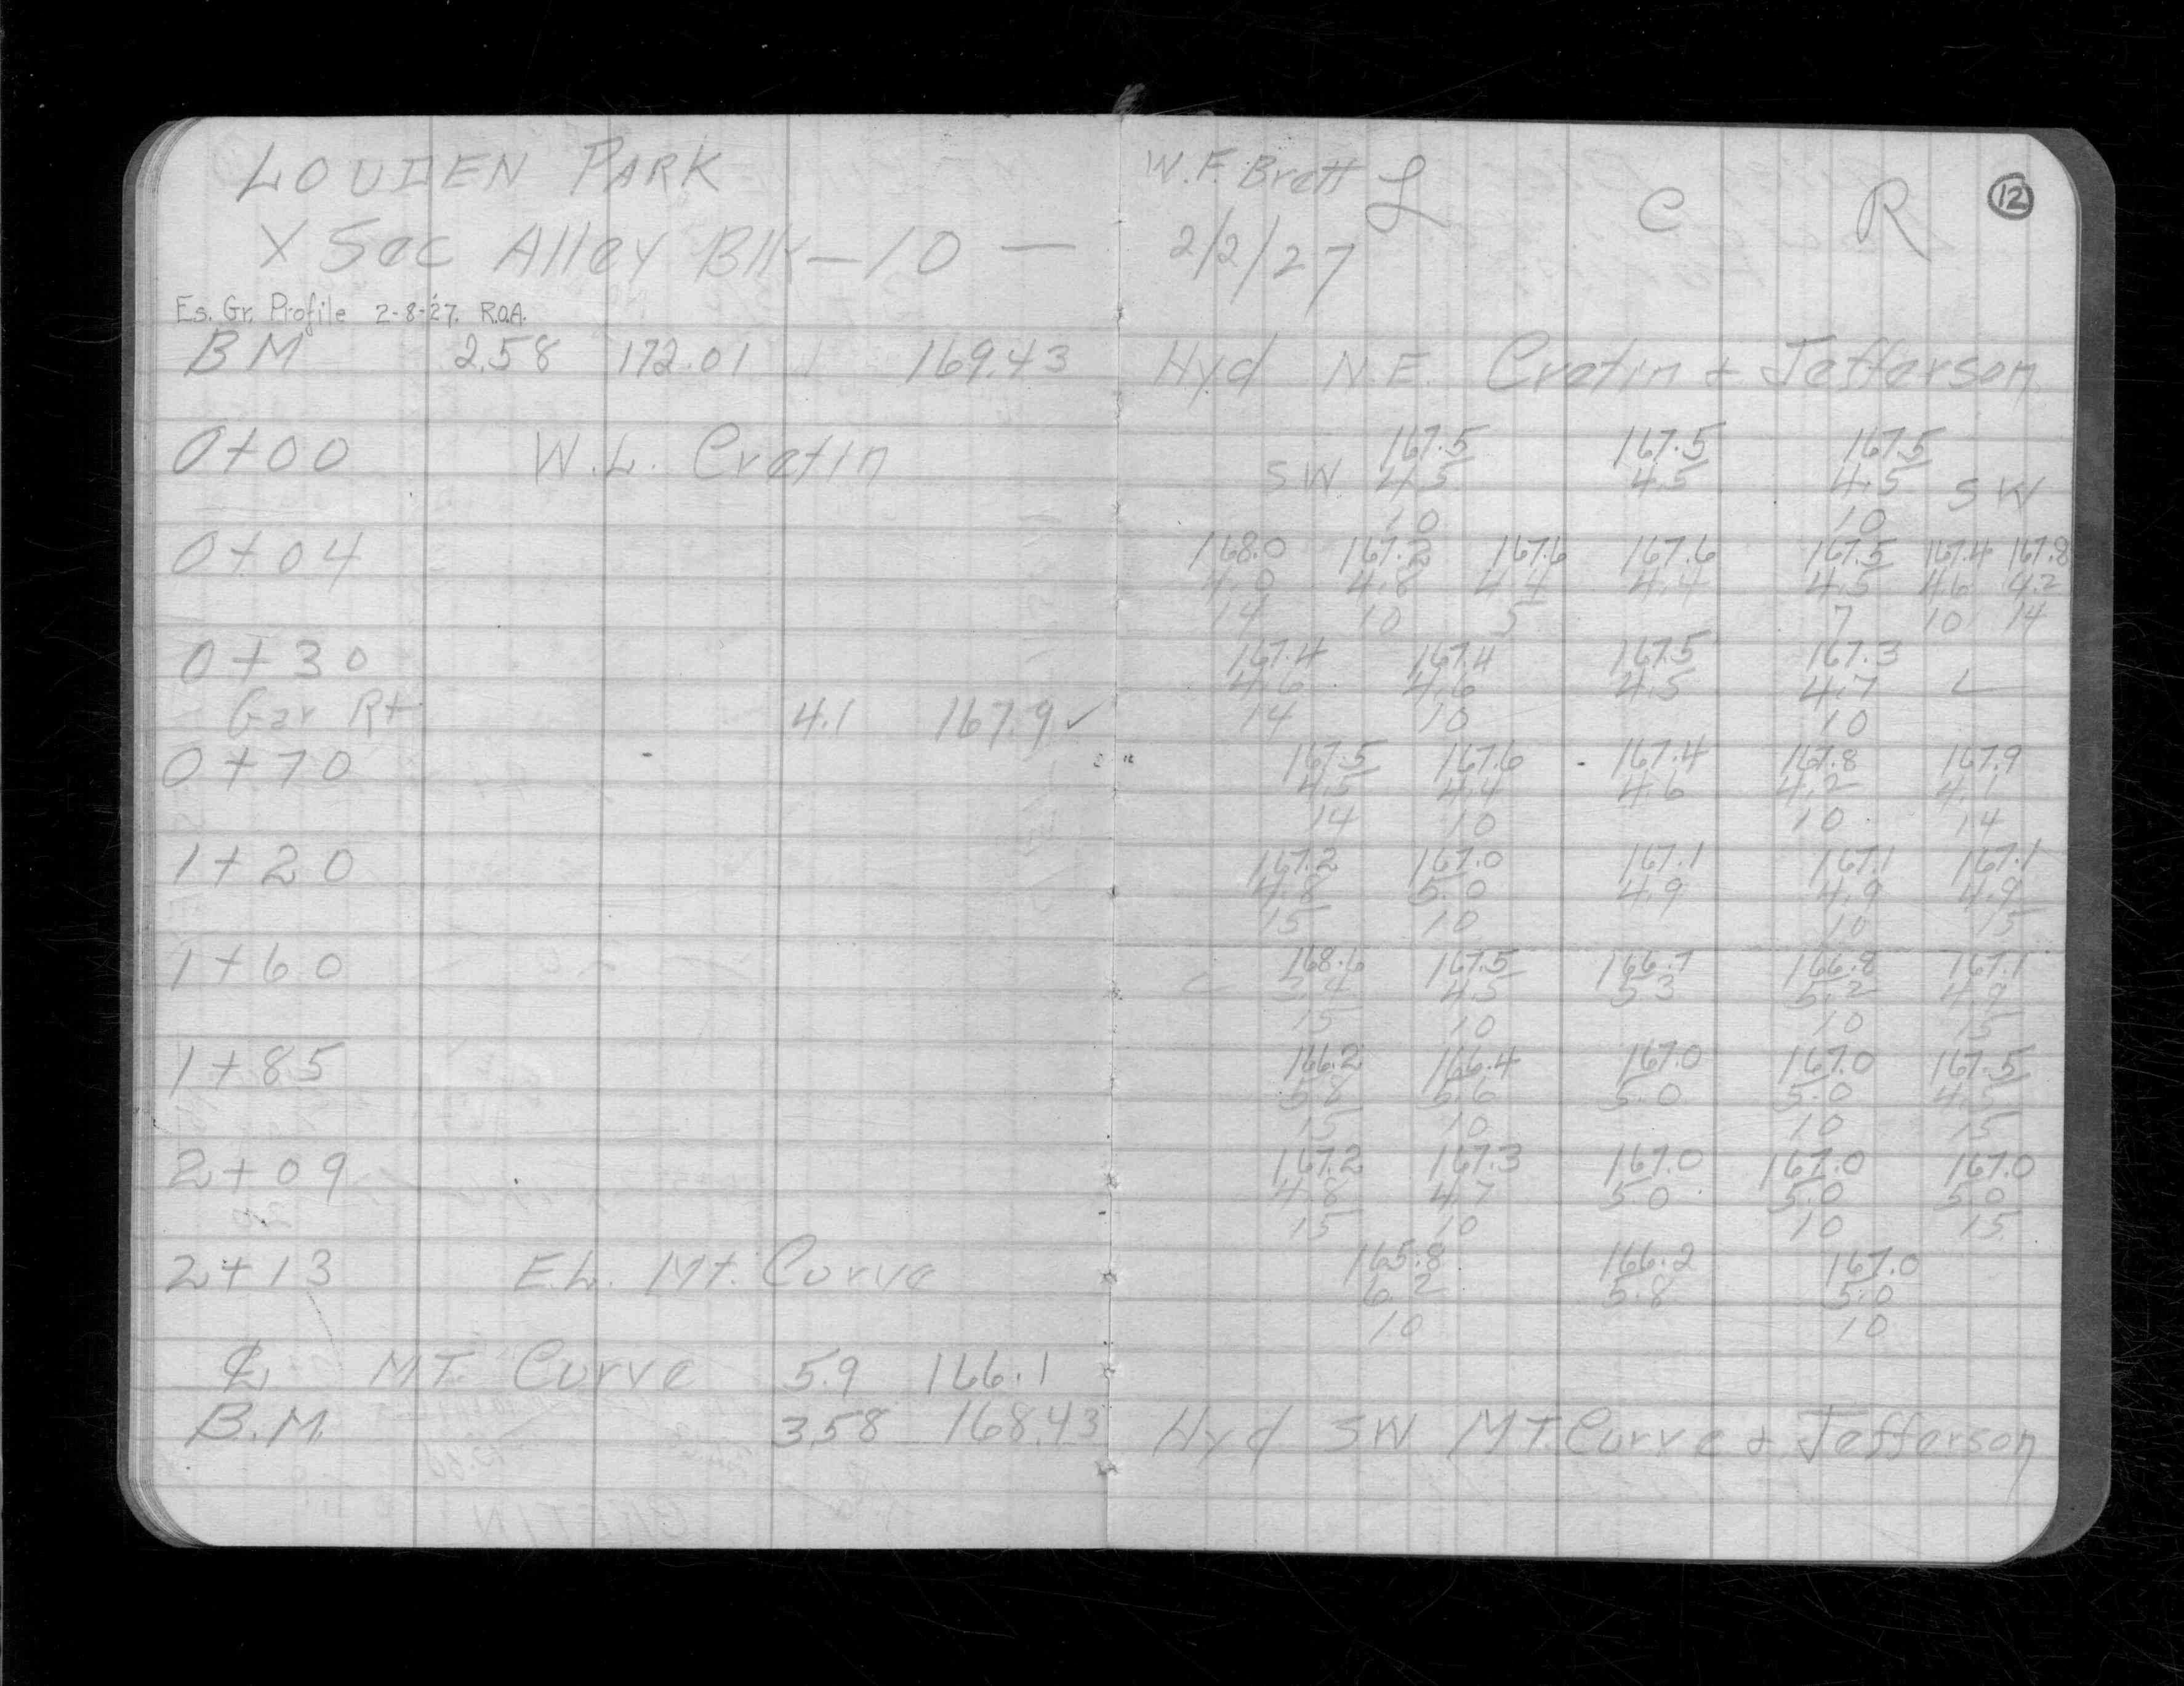 LOUDEN PARK
X Sec Alley Blk - 10 —
Es. Gr. Profile 2-8-'27. R.O.A.
BM 2.58 172.01 169.43
0+00 W.L. Cretin
0+04
0+30
Gar Rt 4.1 167.9 ✓
0+70
1+20
1+60
1+85
2+09
2+13 E.L. Mt. Curve
℄ MT. Curve 5.9 166.1
B.M. 3.58 168.43
W.F. Brett L C R 12
2/2/27
Hyd N.E. Cretin + Jefferson
167.5 167.5 167.5
SW 4.5 4.5 4.5 SW
10 10
168.0 167.2 167.6 167.6 167.5 167.4 167.8
4.0 4.8 4.4 4.4 4.5 4.6 4.2
14 10 5 7 10 14
167.4 167.4 167.5 167.3
4.6 4.6 4.5 4.7
14 10 10
167.5 167.6 167.4 167.8 167.9
4.5 4.4 4.6 4.2 4.1
14 10 10 14
167.2 167.0 167.1 167.1 167.1
4.8 5.0 4.9 4.9 4.9
15 10 10 15
168.6 167.5 166.7 166.8 167.1
3.4 4.5 5.3 5.2 4.9
15 10 10 15
166.2 166.4 167.0 167.0 167.5
5.8 5.6 5.0 5.0 4.5
15 10 10 15
167.2 167.3 167.0 167.0 167.0
4.8 4.7 5.0 5.0 5.0
15 10 10 15
165.8 166.2 167.0
6.2 5.8 5.0
10 10
Hyd SW MT. Curve + Jefferson